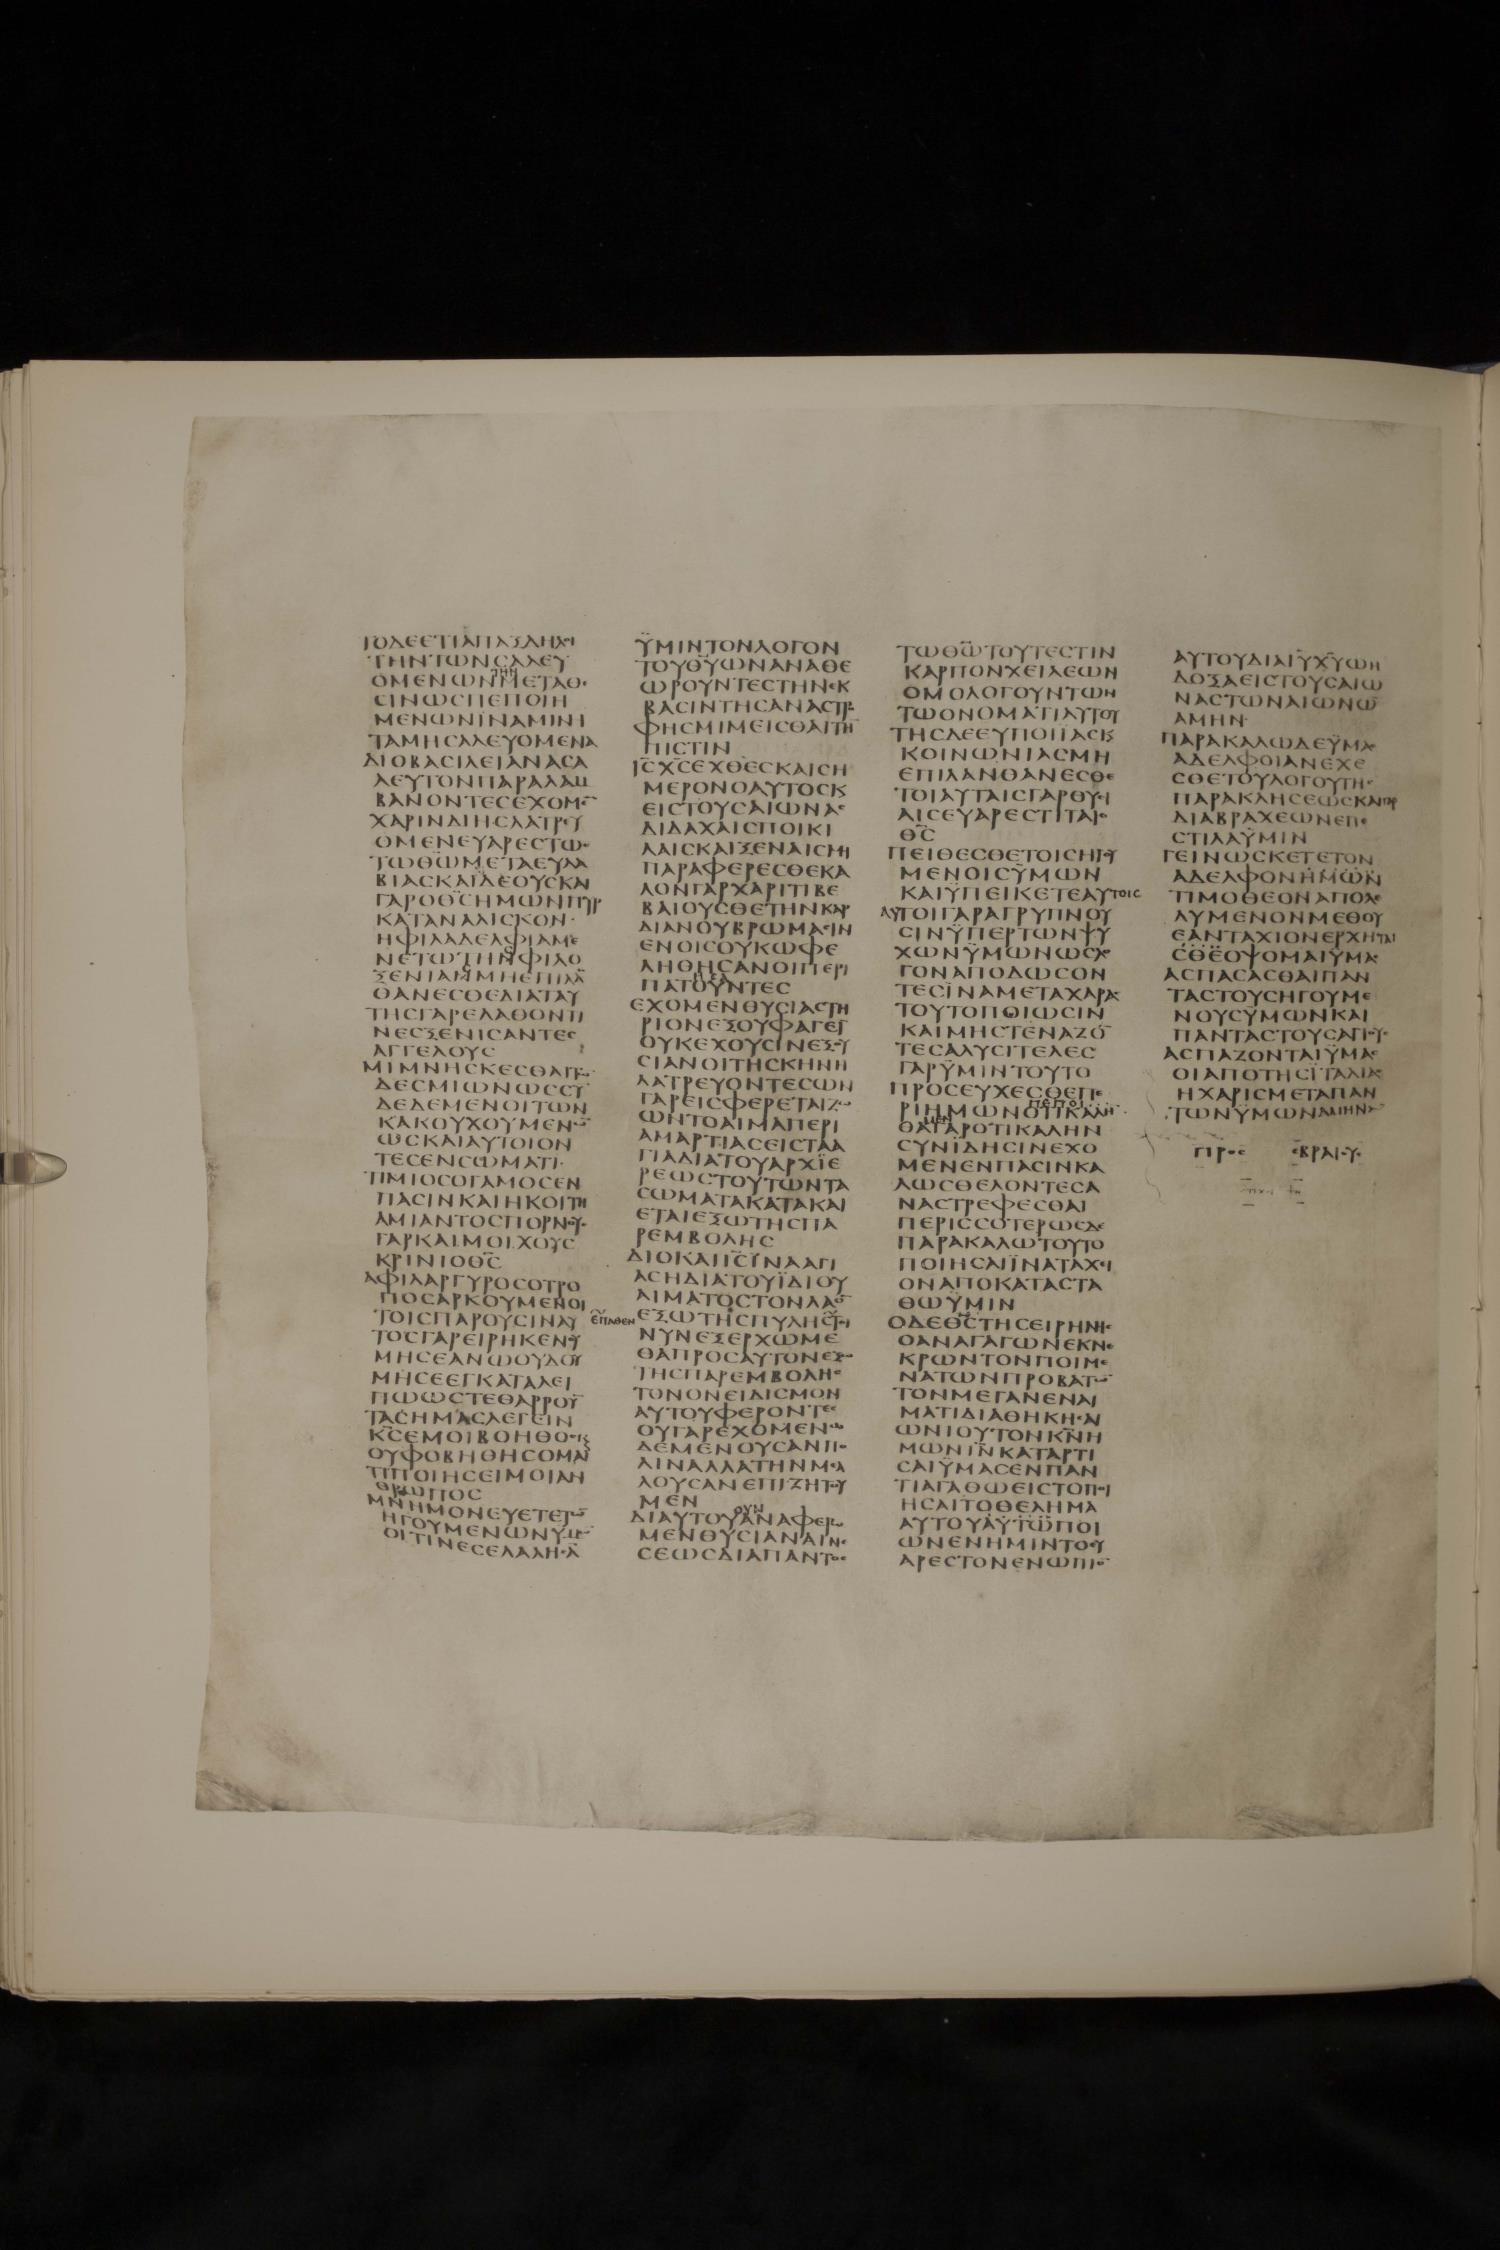 ΤΟΔΕΕΤΙΑΠΑΞΔΗΛΟΙ
ΤΗΝΤΩΝCΑΛΕΥ
ΟΜΕΝΩΝΜΕΤΑΘΕ
CΙΝΩCΠΕΠΟΙΗ
ΜΕΝΩΝΙΝΑΜΙΝΗ
ΤΑΜΗCΑΛΕΥΟΜΕΝΑ
ΔΙΟΒΑCΙΛΕΙΑΝΑCΑ
ΛΕΥΤΟΝΠΑΡΑΛΑΜ
ΒΑΝΟΝΤΕCΕΧΟΜΕ̅
ΧΑΡΙΝΔΙΗCΛΑΤΡΕΥ
ΟΜΕΝΕΥΑΡΕCΤΩC
ΤΩΘ̅Ω̅ΜΕΤΑΕΥΛΑ
ΒΙΑCΚΑΙΔΕΟΥCΚΑΙ
ΓΑΡΟΘ̅C̅ΗΜΩΝΠΥΡ
ΚΑΤΑΝΑΛΙCΚΟΝ·
ΗΦΙΛΑΔΕΛΦΙΑΜΕ
ΝΕΤΩΤΗΝΦΙΛΟ
ΞΕΝΙΑΝΜΗΕΠΙΛΑ̅
ΘΑΝΕCΘΕΔΙΑΤΑΥ
ΤΗCΓΑΡΕΛΑΘΟΝΤΙ
ΝΕCΞΕΝΙCΑΝΤΕC
ΑΓΓΕΛΟΥC
ΜΙΜΝΗCΚΕCΘΑΙΤΩ̅
ΔΕCΜΙΩΝΩCCΥ̅
ΔΕΔΕΜΕΝΟΙΤΩΝ
ΚΑΚΟΥΧΟΥΜΕΝΩ̅
ΩCΚΑΙΑΥΤΟΙΟΝ
ΤΕCΕΝCΩΜΑΤΙ·
ΤΙΜΙΟCΟΓΑΜΟCΕΝ
ΠΑCΙΝΚΑΙΗΚΟΙΤΗ
ΑΜΙΑΝΤΟCΠΟΡΝΟΥC
ΓΑΡΚΑΙΜΟΙΧΟΥC
ΚΡΙΝΙΟΘ̅C̅
ΑΦΙΛΑΡΓΥΡΟCΟΤΡΟ
ΠΟCΑΡΚΟΥΜΕΝΟΙ
ΤΟΙCΠΑΡΟΥCΙΝΑΥ
ΤΟCΓΑΡΕΙΡΗΚΕΝΟΥ
ΜΗCΕΑΝΩΟΥΔΟΥ
ΜΗCΕΕΓΚΑΤΑΛΕΙ
ΠΩΩCΤΕΘΑΡΡΟΥ̅
ΤΑCΗΜΑCΛΕΓΕΙΝ
Κ̅C̅ΕΜΟΙΒΟΗΘΟC
ΟΥΦΟΒΗΘΗCΟΜΑΙ
ΤΙΠΟΙΗCΕΙΜΟΙΑΝ
ΘΡΩΠΟC
ΜΝΗΜΟΝΕΥΕΤΕΤΩ̅
ΗΓΟΥΜΕΝΩΝΥΜΩ̅
ΟΙΤΙΝΕCΕΛΑΛΗCΑ̅
ΫΜΙΝΤΟΝΛΟΓΟΝ
ΤΟΥΘ̅Υ̅ΩΝΑΝΑΘΕ
ΩΡΟΥΝΤΕCΤΗΝΕΚ
ΒΑCΙΝΤΗCΑΝΑCΤΡΟ
ΦΗCΜΙΜΕΙCΘΑΙΤΗ̅
ΠΙCΤΙΝ
Ι̅C̅Χ̅C̅ΕΧΘΕCΚΑΙCΗ
ΜΕΡΟΝΟΑΥΤΟCΚ
ΕΙCΤΟΥCΑΙΩΝΑC
ΔΙΔΑΧΑΙCΠΟΙΚΙ
ΛΑΙCΚΑΙΞΕΝΑΙCΜΗ
ΠΑΡΑΦΕΡΕCΘΕΚΑ
ΛΟΝΓΑΡΧΑΡΙΤΙΒΕ
ΒΑΙΟΥCΘΕΤΗΝΚΑΡ
ΔΙΑΝΟΥΒΡΩΜΑCΙΝ
ΕΝΟΙCΟΥΚΩΦΕ
ΛΗΘΗCΑΝΟΙΠΕΡΙ
ΠΑΤΟΥΝΤΕC
ΕΧΟΜΕΝΘΥCΙΑCΤΗ
ΡΙΟΝΕΞΟΥΦΑΓΕΙ̅
ΟΥΚΕΧΟΥCΙΝΕΞΟΥ
CΙΑΝΟΙΤΗCΚΗΝΗ
ΛΑΤΡΕΥΟΝΤΕCΩΝ
ΓΑΡΕΙCΦΕΡΕΤΑΙΖΩ
ΩΝΤΟΑΙΜΑΠΕΡΙ
ΑΜΑΡΤΙΑCΕΙCΤΑΑ
ΓΙΑΔΙΑΤΟΥΑΡΧΪΕ
ΡΕΩCΤΟΥΤΩΝΤΑ
CΩΜΑΤΑΚΑΤΑΚΑΙ
ΕΤΑΙΕΞΩΤΗCΠΑ
ΡΕΜΒΟΛΗC
ΔΙΟΚΑΙΙ̅C̅ΙΝΑΑΓΙ
ΑCΗΔΙΑΤΟΥΪΔΙΟΥ
ΑΙΜΑΤΟCΤΟΝΛΑΟ̅
ΕΠΑΘΕΝ
ΕΞΩΤΗCΠΥΛΗC
ΝΥΝΕΞΕΡΧΩΜΕ
ΘΑΠΡΟCΑΥΤΟΝΕΞΩ
ΤΗCΠΑΡΕΜΒΟΛΗC
ΤΟΝΟΝΕΙΔΙCΜΟΝ
ΑΥΤΟΥΦΕΡΟΝΤΕC
ΟΥΓΑΡΕΧΟΜΕΝΩ
ΔΕΜΕΝΟΥCΑΝΠΟ
ΛΙΝΑΛΛΑΤΗΝΜΕΛ
ΛΟΥCΑΝΕΠΙΖΗΤΟΥ
ΜΕΝ
ΟΥΝ
ΔΙΑΥΤΟΥΑΝΑΦΕΡΩ
ΜΕΝΘΥCΙΑΝΑΙΝΕ
CΕΩCΔΙΑΠΑΝΤΟC
ΤΩΘ̅Ω̅ΤΟΥΤΕCΤΙΝ
ΚΑΡΠΟΝΧΕΙΛΕΩΝ
ΟΜΟΛΟΓΟΥΝΤΩΝ
ΤΩΟΝΟΜΑΤΙΑΥΤΟΥ
ΤΗCΔΕΕΥΠΟΙΪΑCΚ
ΚΟΙΝΩΝΙΑCΜΗ
ΕΠΙΛΑΝΘΑΝΕCΘΕ
ΤΟΙΑΥΤΑΙCΓΑΡΘΥCΙ
ΑΙCΕΥΑΡΕCΤΙΤΑΙΟ
Θ̅C̅
ΠΕΙΘΕCΘΕΤΟΙCΗΓΟΥ
ΜΕΝΟΙCΫΜΩΝ
ΚΑΙΫΠΕΙΚΕΤΕΑΥΤΟΙC
ΑΥΤΟΙΓΑΡΑΓΡΥΠΝΟΥ
CΙΝΫΠΕΡΤΩΝΨΥ
ΧΩΝΫΜΩΝΩCΛΟ
ΓΟΝΑΠΟΔΩCΟΝ
ΤΕCΪΝΑΜΕΤΑΧΑΡΑC
ΤΟΥΤΟΠΟΙΩCΙΝ
ΚΑΙΜΗCΤΕΝΑΖΟ̅
ΤΕCΑΛΥCΙΤΕΛΕC
ΓΑΡΫΜΙΝΤΟΥΤΟ
ΠΡΟCΕΥΧΕCΘΕΠΕ
ΡΙΗΜΩΝΟΤΙΚΑΛΗ
ΘΑΓΑΡΟΤΙΚΑΛΗΝ
CΥΝΪΔΗCΙΝΕΧΟ
ΜΕΝΕΝΠΑCΙΝΚΑ
ΛΩCΘΕΛΟΝΤΕCΑ
ΝΑCΤΡΕΦΕCΘΑΙ
ΠΕΡΙCCΟΤΕΡΩCΔΕ
ΠΑΡΑΚΑΛΩΤΟΥΤΟ
ΠΟΙΗCΑΙΪΝΑΤΑΧΕΙ
ΟΝΑΠΟΚΑΤΑCΤΑ
ΘΩΫΜΙΝ
ΟΔΕΘ̅C̅ΤΗCΕΙΡΗΝΗC
ΟΑΝΑΓΑΓΩΝΕΚΝΕ
ΚΡΩΝΤΟΝΠΟΙΜΕ
ΝΑΤΩΝΠΡΟΒΑΤΩ̅
ΤΟΝΜΕΓΑΝΕΝΑΙ
ΜΑΤΙΔΙΑΘΗΚΗCΑΙ
ΩΝΙΟΥΤΟΝΚ̅Ν̅Η
ΜΩΝΙ̅Ν̅ΚΑΤΑΡΤΙ
CΑΙΫΜΑCΕΝΠΑΝ
ΤΙΑΓΑΘΩΕΙCΤΟΠΟΙ
ΗCΑΙΤΟΘΕΛΗΜΑ
ΑΥΤΟΥΑΥΤΩΠΟΙ
ΩΝΕΝΗΜΙΝΤΟΕΥ
ΑΡΕCΤΟΝΕΝΩΠΙΟ̅
ΑΥΤΟΥΔΙΑΙ̅Υ̅Χ̅Υ̅ΩΗ
ΔΟΞΑΕΙCΤΟΥCΑΙΩ
ΝΑCΤΩΝΑΙΩΝΩ̅
ΑΜΗΝ·
ΠΑΡΑΚΑΛΩΔΕΫΜΑC
ΑΔΕΛΦΟΙΑΝΕΧΕ
CΘΕΤΟΥΛΟΓΟΥΤΗC
ΠΑΡΑΚΛΗCΕΩCΚΑΙΓΑΡ
ΔΙΑΒΡΑΧΕΩΝΕΠΕ
CΤΙΛΑΫΜΙΝ
ΓΕΙΝΩCΚΕΤΕΤΟΝ
ΑΔΕΛΦΟΝΗΜΩΝ
ΤΙΜΟΘΕΟΝΑΠΟΛΕ
ΛΥΜΕΝΟΝΜΕΘΟΥ
ΕΑΝΤΑΧΙΟΝΕΡΧΗΤΑΙ
CΘΕΟΨΟΜΑΙΫΜΑC
ΑCΠΑCΑCΘΑΙΠΑΝ
ΤΑCΤΟΥCΗΓΟΥΜΕ
ΝΟΥCΫΜΩΝΚΑΙ
ΠΑΝΤΑCΤΟΥCΑΓΙΟΥC
ΑCΠΑΖΟΝΤΑΙΫΜΑC
ΟΙΑΠΟΤΗCΪΤΑΛΙΑC
ΗΧΑΡΙCΜΕΤΑΠΑΝ
ΤΩΝΫΜΩΝΑΜΗΝ
ΠΡΟC ΕΒΡΑΙΟΥC